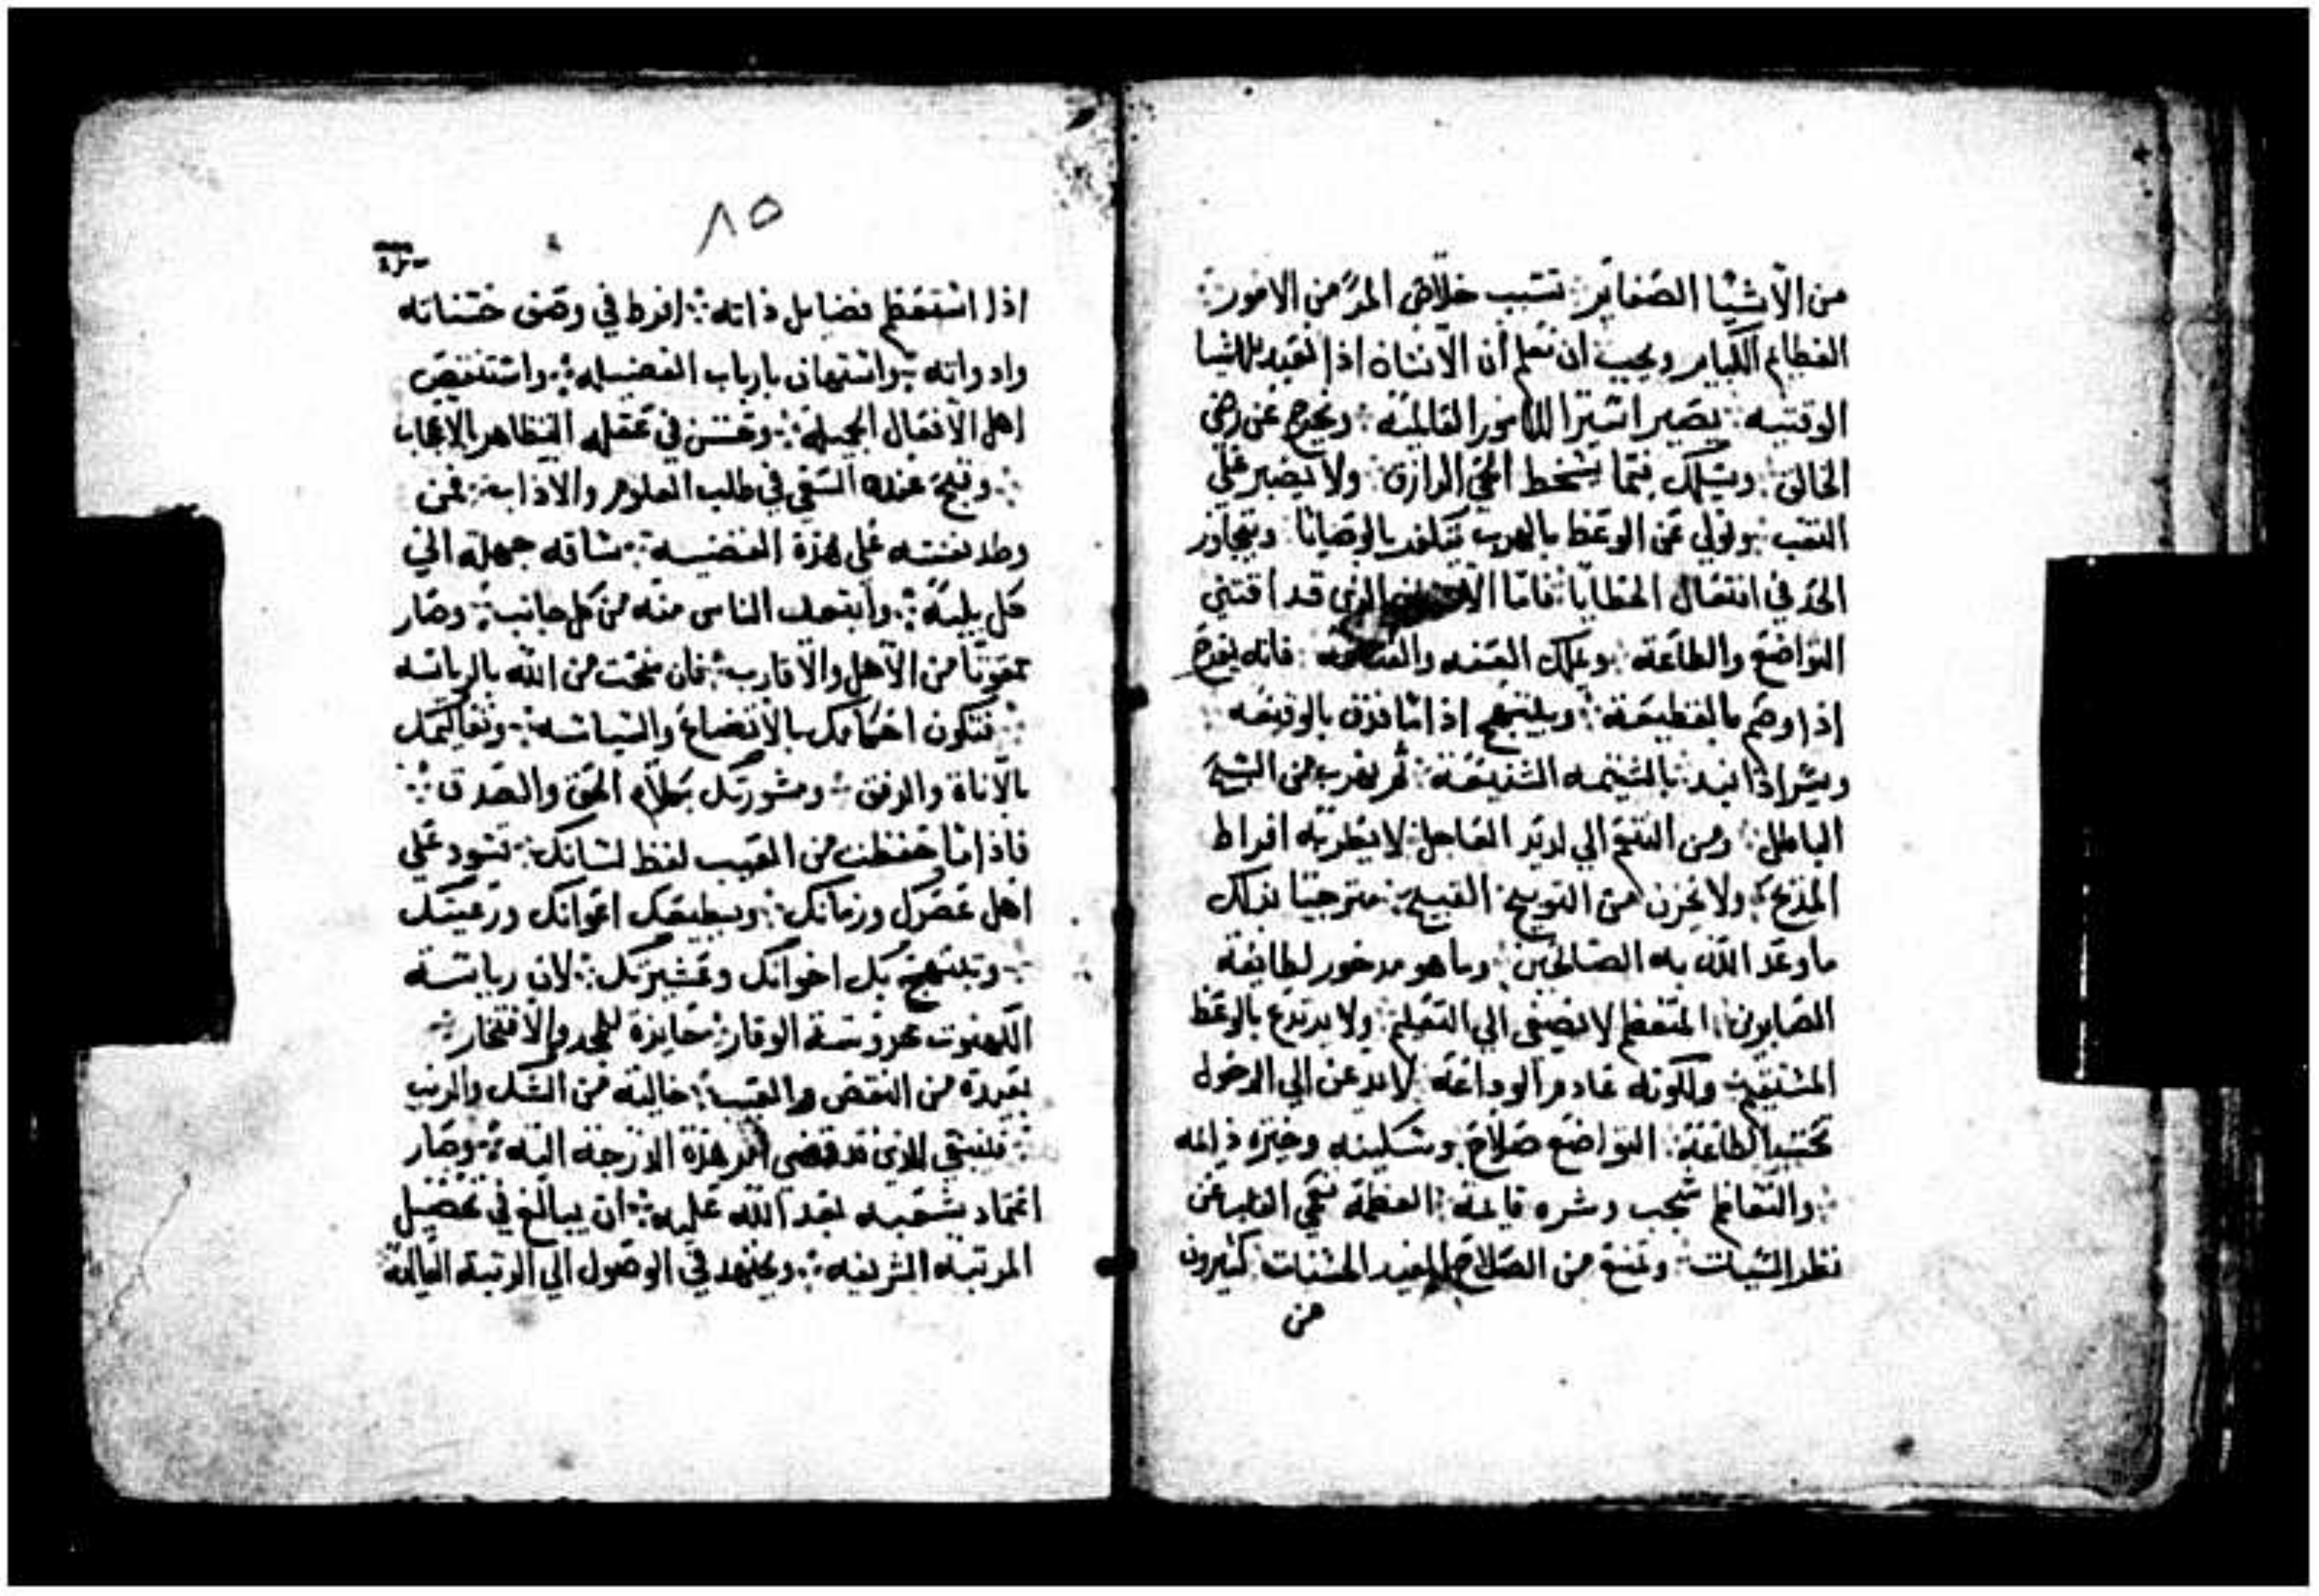 من الاشيا الصغاير ∴ تسبب خلاص المرء من الامور ∴
العظايم الكبار ويجب ان نعلم ان الانسان اذا تقيد بالاشيا
الوقتيه ∴ يصير اسيرا للامور العالمية ∴ ويخرج عن رضي
الخالق ∴ ويسلك فيما يسخط الحي الرازق ∴ ولا يصبر علي
التعب ∴ ويولي عن الوعظ بالهرب بالوصايا ∴ ويتجاوز
الحد في افتعال الخطايا ∴ فاما الذي قد اقتني
التواضع والطاعة ∴ ويملك العفه والقناعة ∴ فانه يفرح
إذا وصم بالقطيعة ∴ ويبتهج اذا ما قذف بالوقيعه ∴
ويسر اذا نبد بالشتيمه الشنيعة ∴ ثم يقرب من الشبح
الباطل ∴ ومن التنعم الي العاجل ∴ لا يطربه افراط
المديح ∴ ولا يحزن من التوبيخ القبيح ∴ مترجيا بذلك
ما وعد الله به الصالحين ∴ وما هو مدخور لطايفة
الصابرين ∴ المتعظم لا يصغي الي التعلم ∴ ولا يرتدع بالوعظ
المستقيم ∴ ولكونه عادم الوداعة ∴ لا يدعن الي الدخول
تحت الطاعة ∴ التواضع صلاح وسكينه وخيره دايمه
∴ والتعاظم شجب وشره قايمة ∴ العظمة تعمي القلب عن
نظر السيات ∴ وتمنع من الصلاح المفيد الحسنات ∴ كثيرون
من
٨٥
اذا استعظم فضايل ذاته ∴ افرط في وصف حسناته
وادواته ∴ واستهان بارباب الفضيله ∴ واستنقص
اهل الافعال الجميلة ∴ وحسن في عقله التظاهر بالاعجاب
∴ وقبح عنده السعي في طلب العلوم والآداب ∴ فمن
وطد نفسه علي هذة القضيه ∴ ساقه جهله الي
كل بليه ∴ وابتعد الناس منه من كل جانب ∴ وصار
ممقوتا من الاهل والاقارب ∴ فان منحت من الله بالرياسه
∴ فتكون احكامك بالاتضاع والسياسه ∴
بالاناة والرفق ∴ ومشورتك بكلام الحق والصدق ∴
فاذا ما حفظت من العيب لفظ لسانك ∴ تسود علي
اهل عصرك وزمانك ∴ ويطيعك اعوانك ورعيتك
∴ وتبتهج بك اخوانك وعشيرتك ∴ لان رياسة
الكهنوت محروسة الوقار ∴ حايزة للمجد والافتخار ∴
بعيدة من النقص والعيب ∴ خالية من الشك والريب
∴ فينبغي للذي قد افضي امر هذة الدرجة اليه ∴ وصار
اعتماد شعبه بعد الله عليه ∴ ان يبالغ في تحصيل
المرتبه الشريفه ∴ ويجتهد في الوصول الي الرتبة العالية